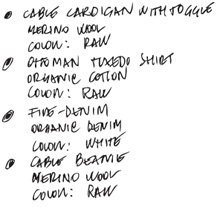 • CABLE CARDIGAN WITH TOGGLE
MERINO WOOL
COLOR: RAW
• OTTOMAN TUXEDO SHIRT
ORGANIC COTTON
COLOR: RAW
• FIVE-DENIM
ORGANIC DENIM
COLOR: WHITE
• CABLE BEANIE
MERINO WOOL
COLOR: RAW